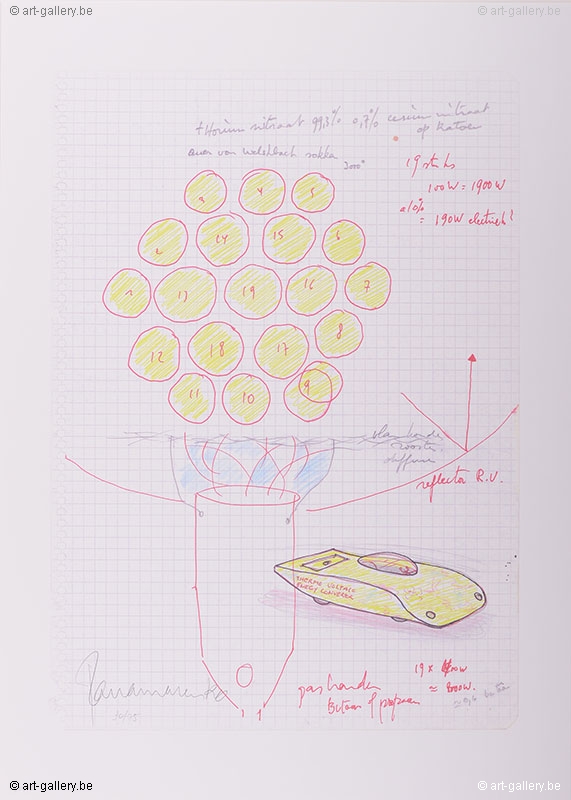 © art-gallery.be
© art-gallery.be
thorium nitraat 99,3% 0,7% cerium nitraat
op katoen
auer von Welshbach sokken 3000°
19 stuks
100W = 1900W
a 10%
= 190W electrisch!
3 4 5
2 14 15 6
1 13 19 16 7
12 18 17 8
11 10 9
rooster
reflector R.V.
THERMO VOLTAIC
ENERGY CONVERTER
gasbrander
Butaan of propaan
19 x
= 800W.
Panamarenko
© art-gallery.be
© art-gallery.be